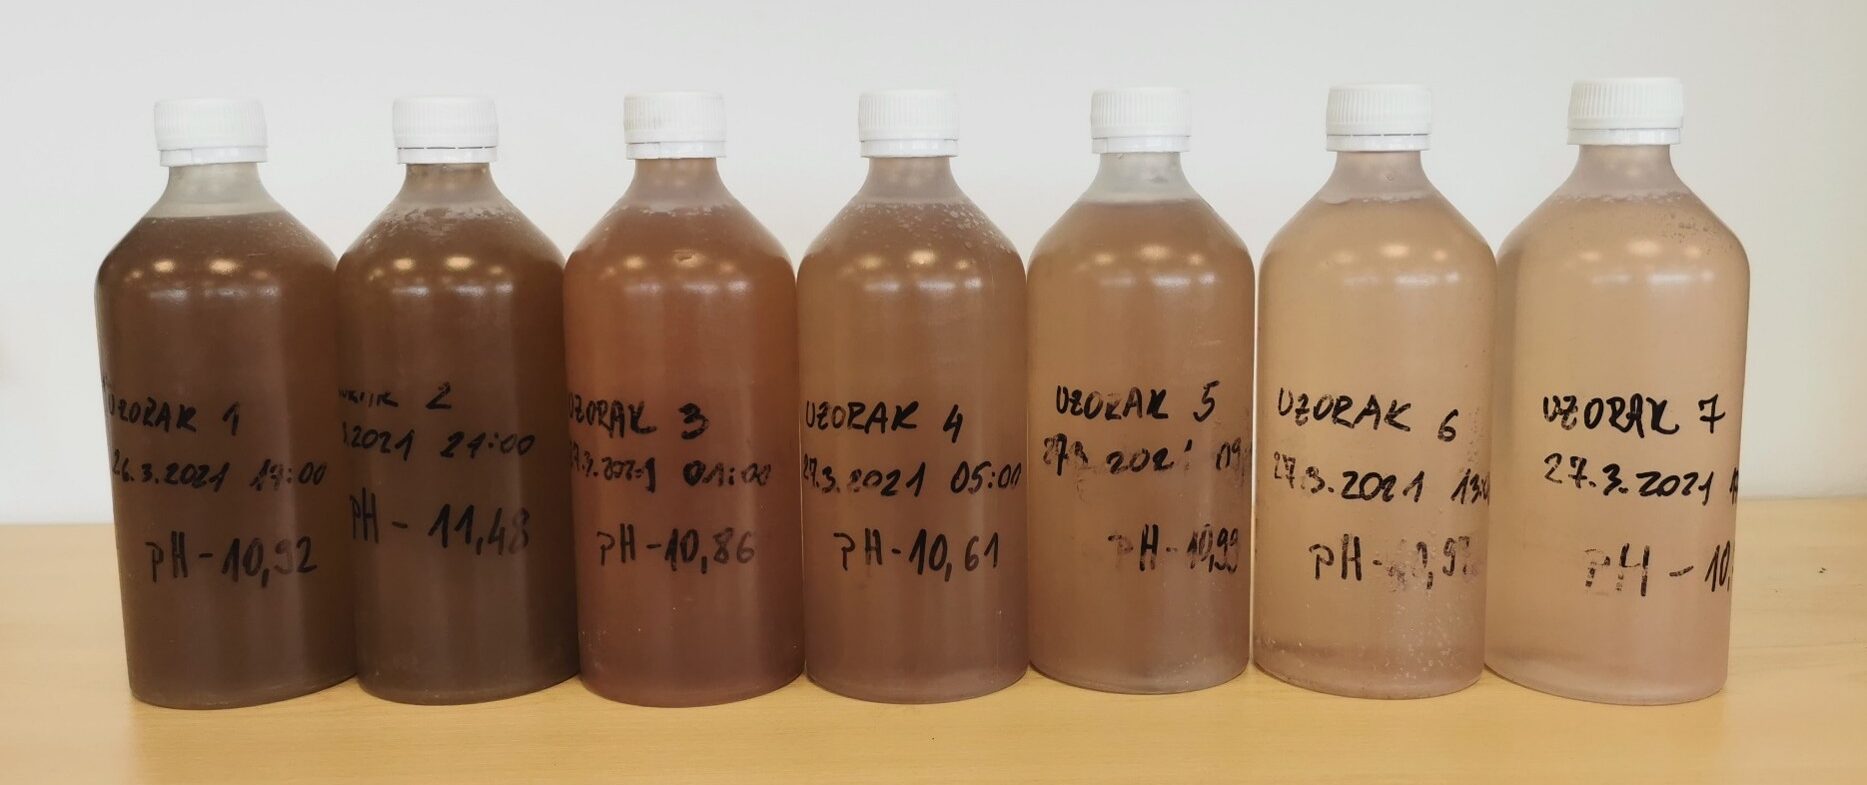 UZORAK 1
26.3.2021 17:00
pH - 10,92
2
3.2021 21:00
pH - 11,48
UZORAK 3
27.3.2021 01:00
pH - 10,86
UZORAK 4
27.3.2021 05:00
pH - 10,61
UZORAK 5
27.3.2021
pH - 10,99
UZORAK 6
27.3.2021
pH -
UZORAK 7
27.3.2021
pH - 10,